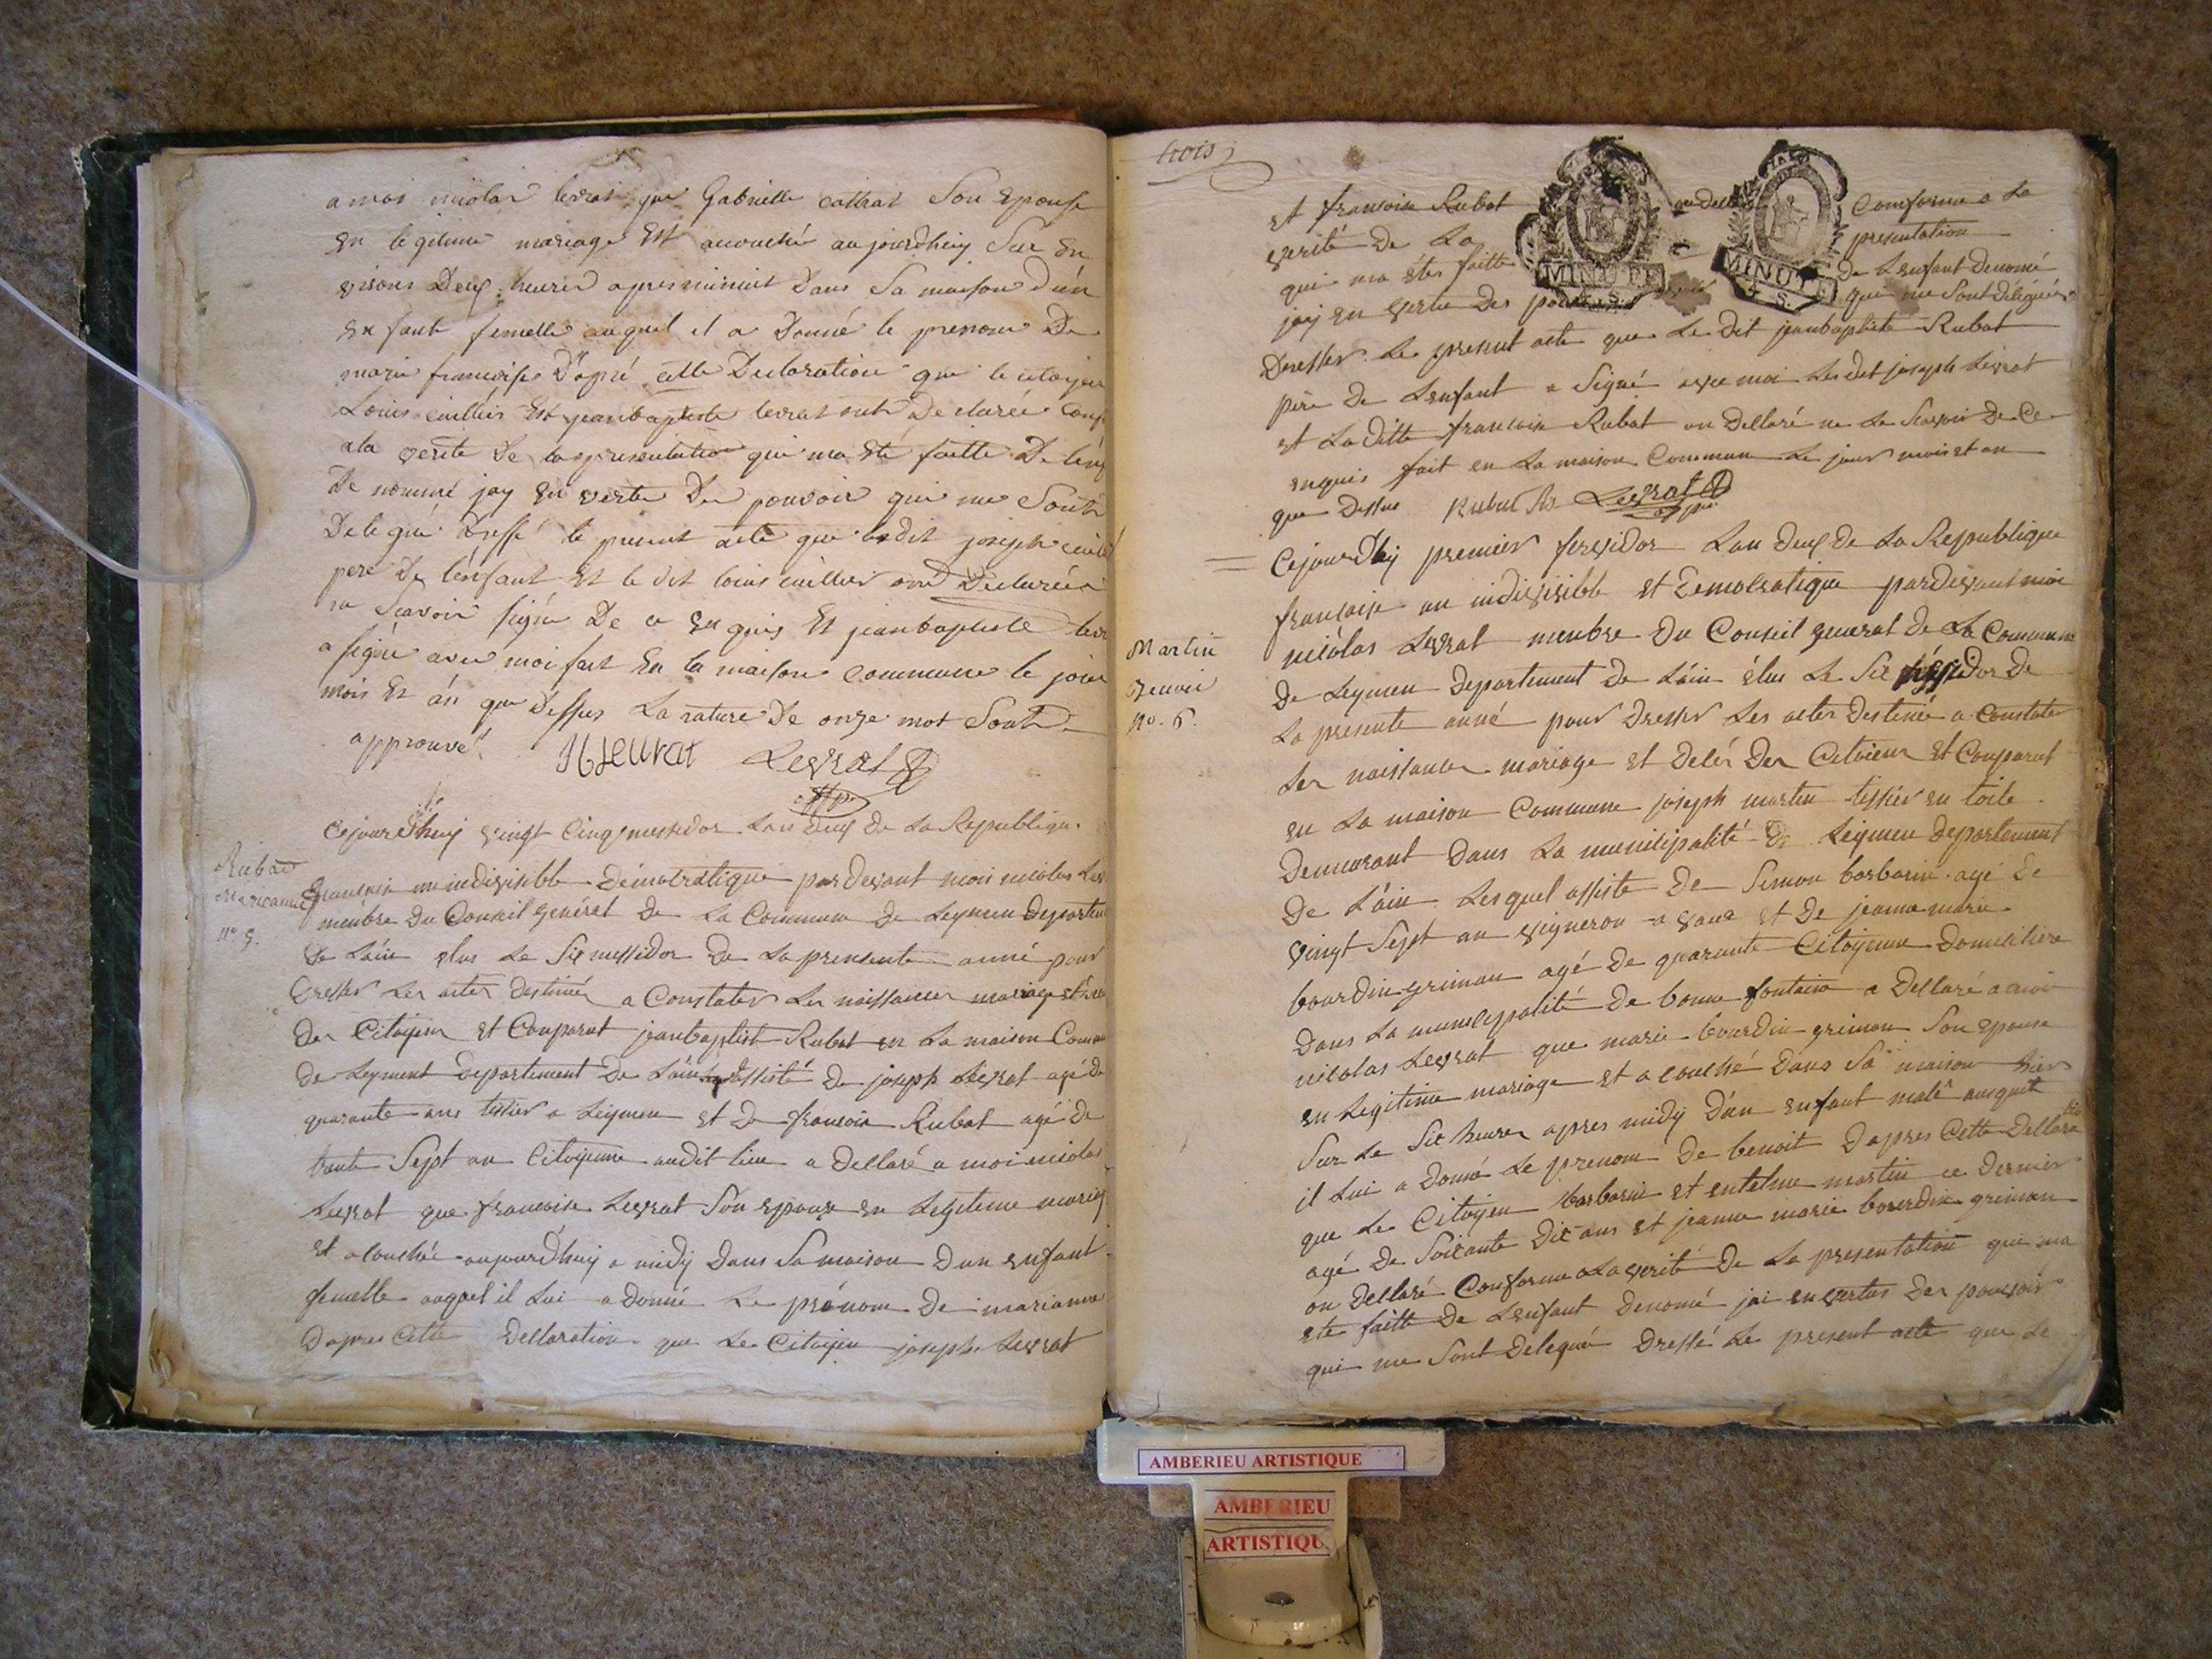 a moi nicolas levrat que Gabrielle cattrat Son epouse
en legitime mariage Est acouchée aujourdhuy Sur en
viront Deux heures apres minuit Dans Sa maison D'un
enfant femelle auquel il a Donné le prenom De
marie francoise D'apré cette Declaration que le citoyen
Louis cuillier Est jeanbaptiste levrat ont Declarée conf
a la verité De la presentation qui ma Eté faitte De lenf
De nommé jay En vertu Des pouvoir qui me Sont
Delegué Dressé le present acte que ledit joseph cuill
pere De l'enfant Et le dit louis cuillier ont Declarée
ne Scavoir signer De ce En quis Et jeanbaptiste levr
a signé avec moi fait En la maison commune le jour
mois Et án que dessus La rature De onze mot Sont
approuvet Levrat
Cejourdhuy vingt Cinq messidor Lan deux de La Republique
Rubat
Marianne
no 5.
francaise un indivisible Démocratique par devant moi nicolas Lev
membre du Conseil général de La Commune de Leymen departem
de L'áin elus Le Six messidor de La presente anné pour
Dresser Les actes destiné a Constater Les naissances mariage et
Des Citoyen et Comparut jeanbaptist Rubat en La maison Comu
de Leyment departement de L'áin assisté de joseph Levrat agé de
quarante ans tissier a Leymen et de francoise Rubat agé de
trante Sept an Citoyenne audit lieu a dellaré a moi nicolas
Levrat que francoise Levrat Son epouse en Legiteme mariag
et acouchée aujourdhuy a midy Dans Sa maison Dun enfant
femelle auquel il Lui a donné Le prénom De marianne
Dapres Cette Dellaration que Le Citoyen joseph Levrat
trois
et francoise Rubat on dell Comforme a La
verité De La presentation
qui ma étés faitte De Lenfant Denomé
jay en vertu Des pouvoir qui me Sont Délégués
Dresser Le present acte que Le dit jeanbaptiste Rubat
père De Lenfant a Signé avec moi Les dit joseph Levrat
et La ditte francoise Rubat on dellaré ne Le Scavoir De Ce
enquis fait en La maison Commun Le jour mois et an
que Dessus Rubat Levrat
MINUTE
MINUTE
Cejourdhuy premier fervidor Lan deux de La Republique
francaise un indivisible et Democratique pardevant moi
Martin
Benoit
no. 6.
nicolas Levrat membre du Conseil general de La Commune
de Leymen departement de L'áin élus Le Six messidor de
La presente anné pour Dresser Les actes destiné a Constater
Les naissances mariage et décés Des Citoiens et Comparut
en La maison Commune joseph martin tissier en toile
Demeurant Dans La municipalité de Leymen departement
De L'áin Lesquel assisté de Simon barbarin agé de
vingt Sept an vigneron a vaux et De jeanne marie
bourdin griman agé De quarante Citoyenne Domiciliere
Dans La municipalité De bonne fontaine a Dellaré a moi
nicolas Levrat que marie bourdin griman Son epouse
en Legitime mariage et acouché Dans Sa maison hier
Sur Le Six heures apres midy D'un enfant malé auquel
il Lui a Donné Le prenom De benoit Dapres Cette Dellara
tion
que Le Citoyen barbarin et entelme martin ce Dernier
agé De Soixante Dix ans et jeanne marie bourdin griman
on Dellaré Conforme a La verité De La presentation qui ma
eté faitte De Lenfant Denomé jai en vertus Des pouvoir
qui me Sont Delegué Dressé Le present acte que Le
AMBERIEU ARTISTIQUE
AMBERIEU
ARTISTIQU